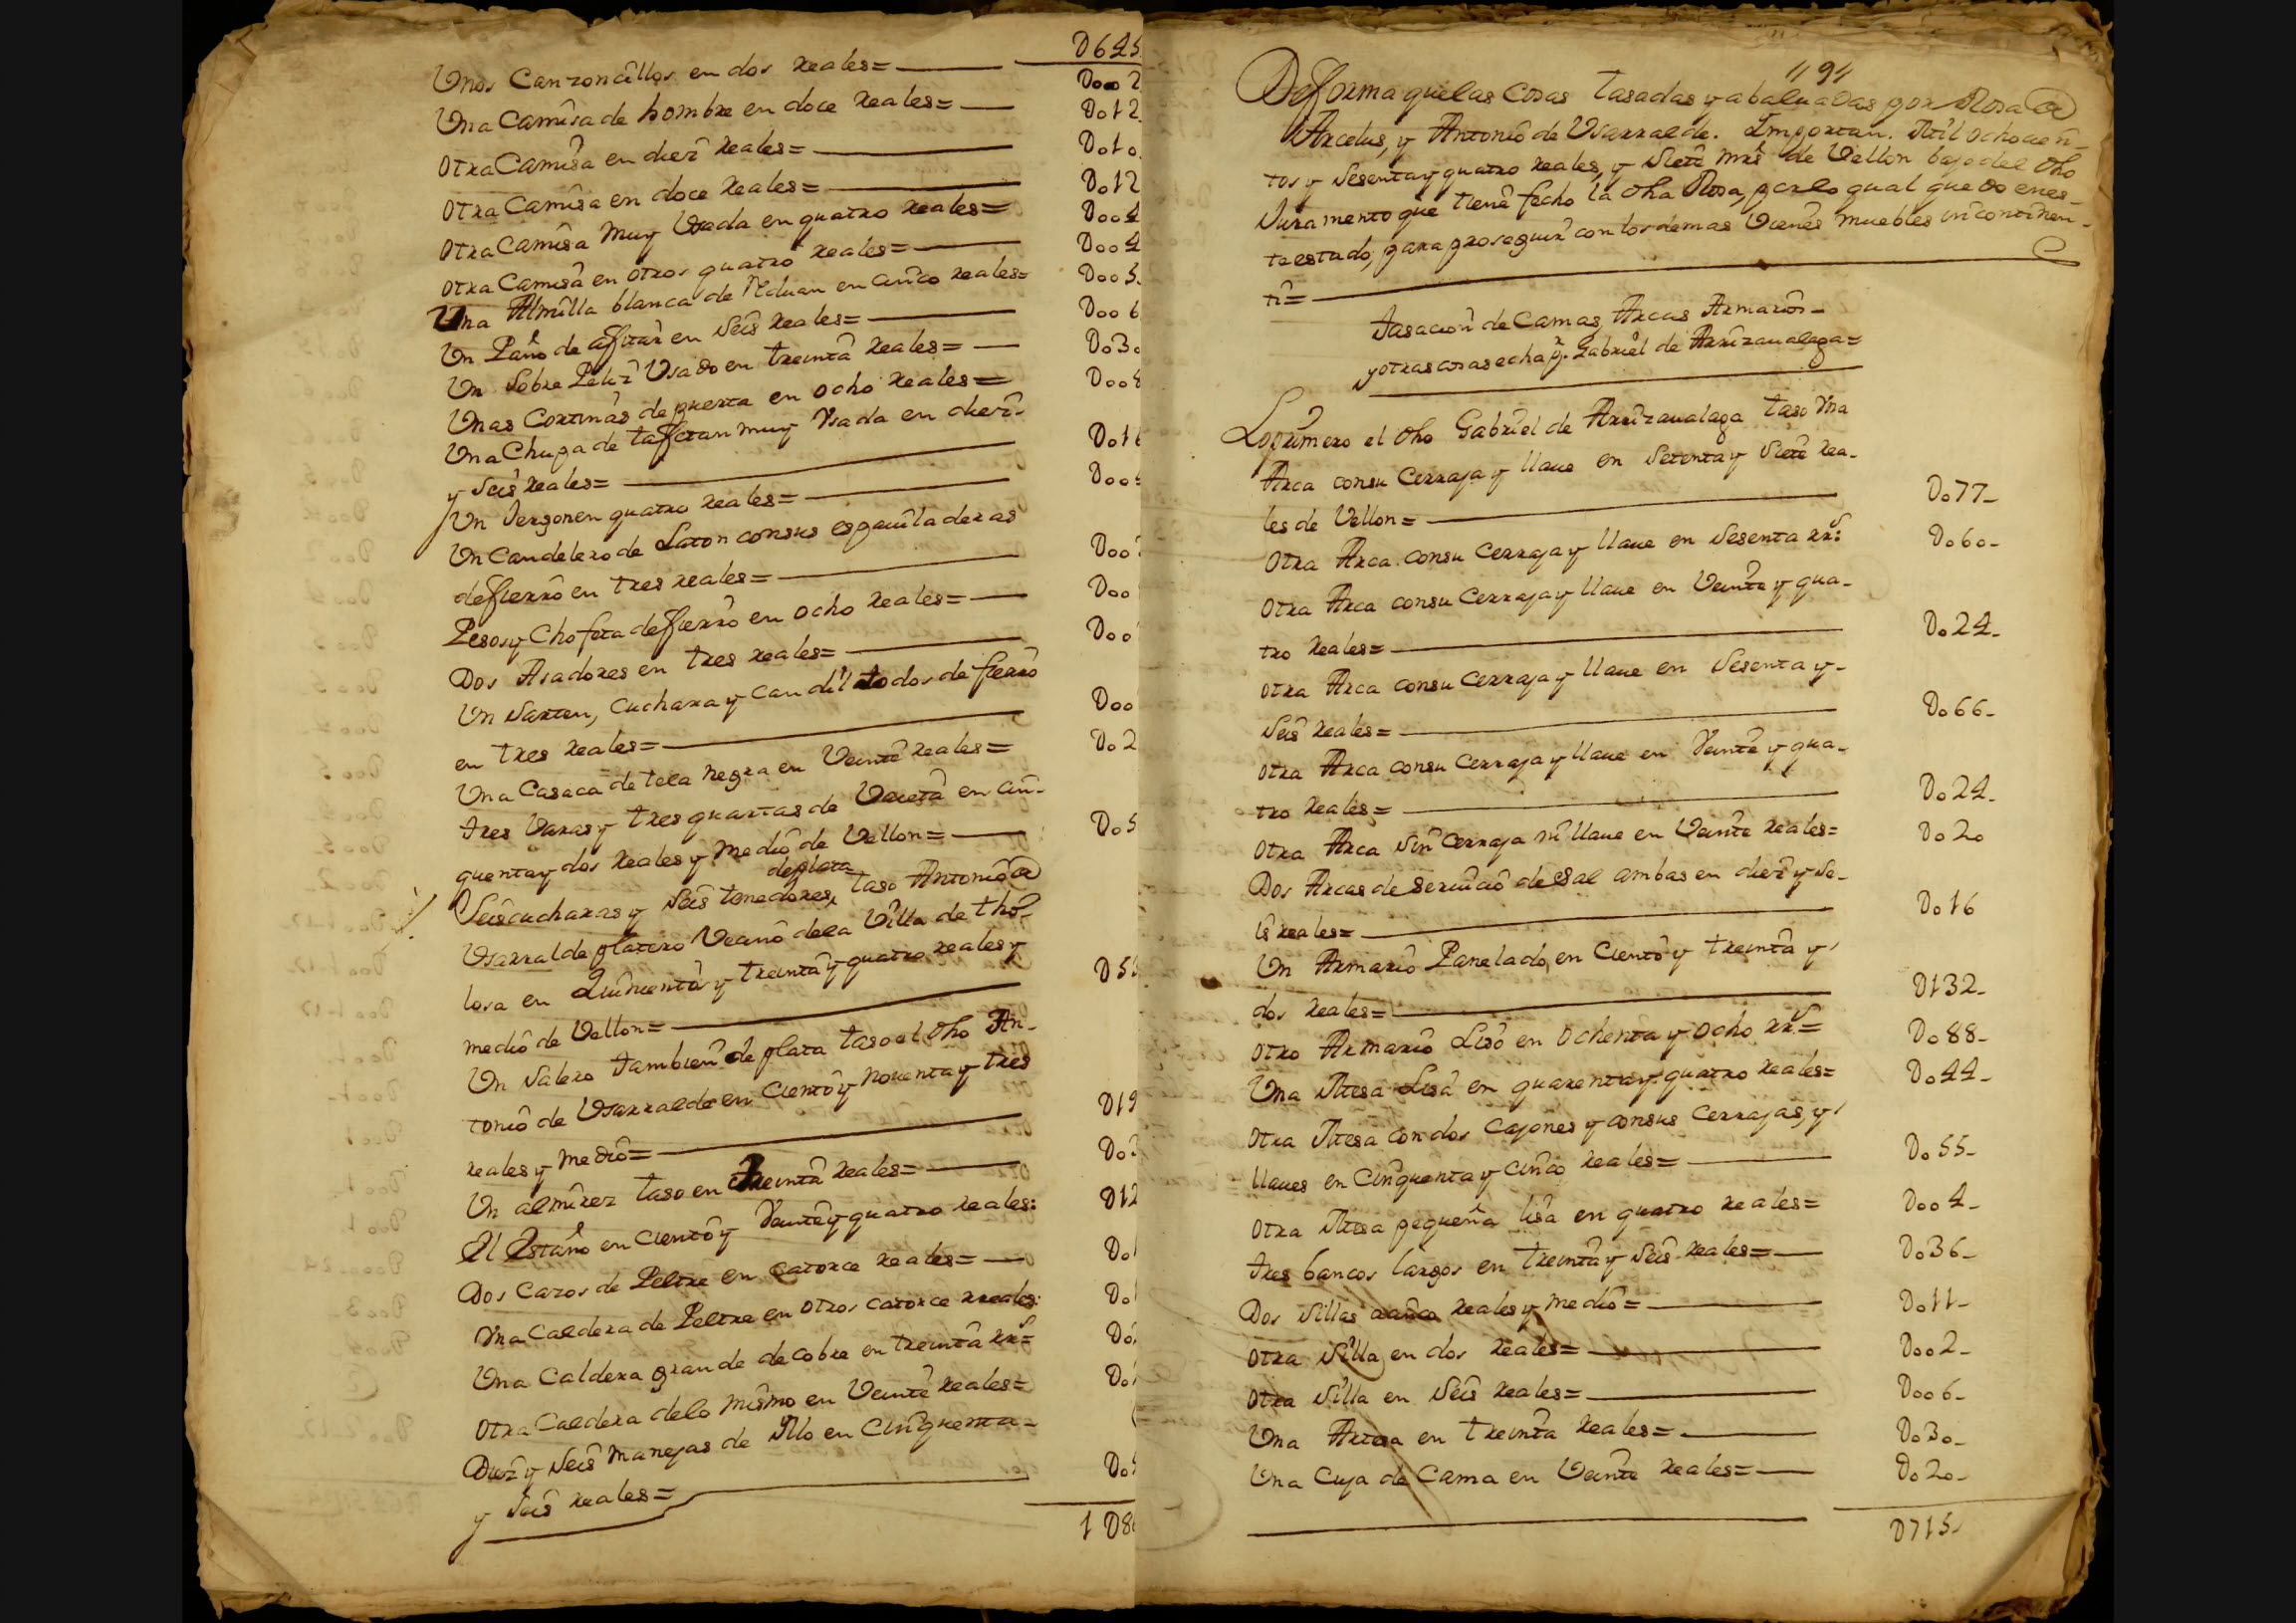 D645
Unos Canzoncillos en dos Reales= D002
Una Camisa de hombre en doce Reales= D012
Otra Camisa en diez Reales= D010
Otra Camisa en doce Reales= D012
Otra Camisa muy Usada en quatro Reales= D004
Otra Camisa en otros quatro Reales= D004
Una Almilla blanca de en cinco Reales= D005
Un Paño de afitar en Seis Reales= D006
Un Sobre Peliz Usado en treinta Reales= D030
Unas Cortinas de puerta en ocho Reales= D008
Una Chupa de tafetan muy Usada en diez-
y Seis Reales= D016
Un Jergon en quatro Reales= D00
Un Candelero de Laton con sus espauiladeras
de fierro en tres reales= D00
Pesos y Chofeta de fierro en ocho Reales= D00
Dos Asadores en tres reales= D00
Un Sarten, Cuchara y Candil todos de fierro
en tres Reales= D00
Una Casaca de tela negra en Veinte Reales= D02
tres Varas y tres quartas de Vaieta en cin-
quenta y dos Reales y medio de Vellon= D05
Seis cucharas y Seis tenedores de plata taso Antonio de
Usarralde platero Vecino dela Villa de tho-
losa en Quinientos y treinta y quatro reales y
medio de Vellon= D53
Un Salero tambien de plata taso el dho An-
tonio de Usarralde en Ciento y Nouenta y tres
reales y medio= D19
Un almirez taso en treinta Reales= D03
El Estaño en Ciento y Veinte y quatro reales: D12
Dos Cazos de Peltre en catorce Reales= D01
Una Caldera de Peltre en otros catorce reales: D01
Una Caldera grande de cobre en treinta rrs= D0
Otra Caldera delo mismo en Veinte Reales= D0
Diez y Seis manejas de Ilo en Cinquenta-
y Seis Reales= D0
1D8
"9"
De forma que las Cosas tasadas y abaluadas por Rosa de
Arcelus, y Antonio de Usarralde. Importan. Mil ochocien-
tos y Sesenta y quatro Reales, y Siete mrs de Vellon bajo del dho
Juramento que tiene fecho la dha Rosa, por lo qual quedo en es-
te estado, para proseguir con los demas Vienes muebles incontinen-
ti=
Tasacion de Camas, Arcas Armarios-
y otras cosas echa pr. Gabriel de Arrizaualaga=
Lo primero el dho Gabriel de Arrizaualaga taso Una
Arca con su Cerraja y llaue en Setenta y Siete rea-
les de Vellon= D077-
Otra Arca con su Cerraja y llaue en Sesenta rrs: D060-
Otra Arca con su Cerraja y llaue en Veinte y qua-
tro Reales= D024-
Otra Arca con su Cerraja y llaue en Sesenta y-
Seis Reales= D066-
Otra Arca con su Cerraja y llaue en Veinte y qua-
tro Reales= D024-
Otra Arca sin Cerraja ni llaue en Veinte Reales= D020
Dos Arcas de seruicio de sal ambas en diez y Se-
is reales= D016
Un Armario Panelado, en Ciento y treinta y
dos Reales= D132-
Otro Armario Liso en ochenta y ocho rrs= D088-
Una Mesa Lisa en quarenta y quatro Reales= D044-
Otra Mesa con dos Cajones y con sus Cerrajas, y
llaues en Cinquenta y Cinco Reales= D055-
Otra Mesa pequeña lisa en quatro Reales= D004-
tres bancos largos en treinta y Seis Reales= D036-
Dos Sillas a cinco Reales y medio= D011-
Otra Silla en dos Reales= D002-
Otra Silla en Seis Reales= D006-
Una Artesa en treinta Reales= D030-
Una Cuja de Cama en Veinte Reales= D020-
D715-